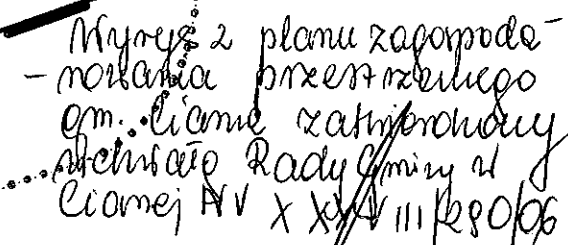 Wyrys z planu zagospoda-
-rowania przestrzennego
gm. Ciasna zatwierdzony
uchwałą Rady Gminy w
Ciasnej Nr XXXVIII/280/06